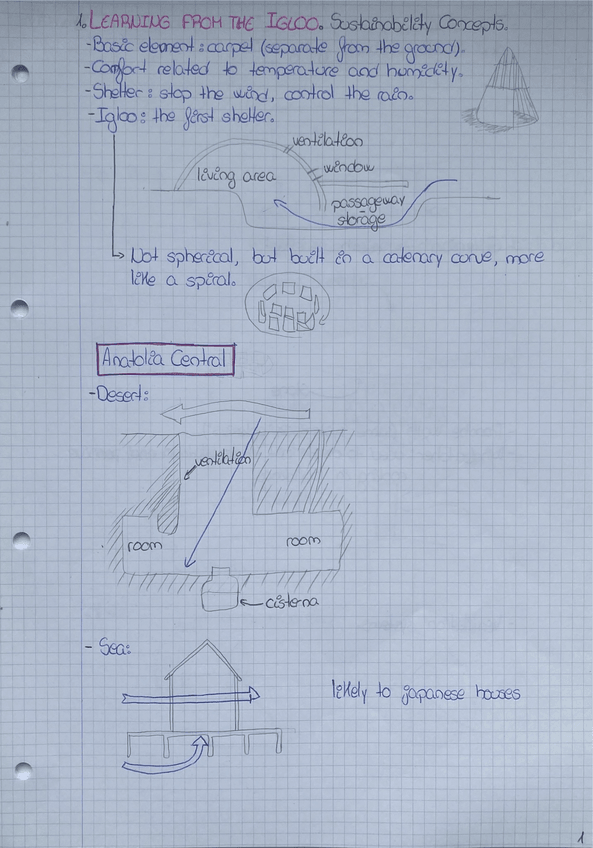 1. LEARNING FROM THE IGLOO. Sustainability Concepts.
-Basic element: carpet (separate from the ground).
-Comfort related to temperature and humidity.
-Shelter: stop the wind, control the rain.
-Igloo: the first shelter.
ventilation
window
living area
passageway
storage
Not spherical, but built in a catenary curve, more
like a spiral.
Anatolia Central
-Desert:
ventilation
room
room
cisterna
- Sea:
likely to japanese houses
1